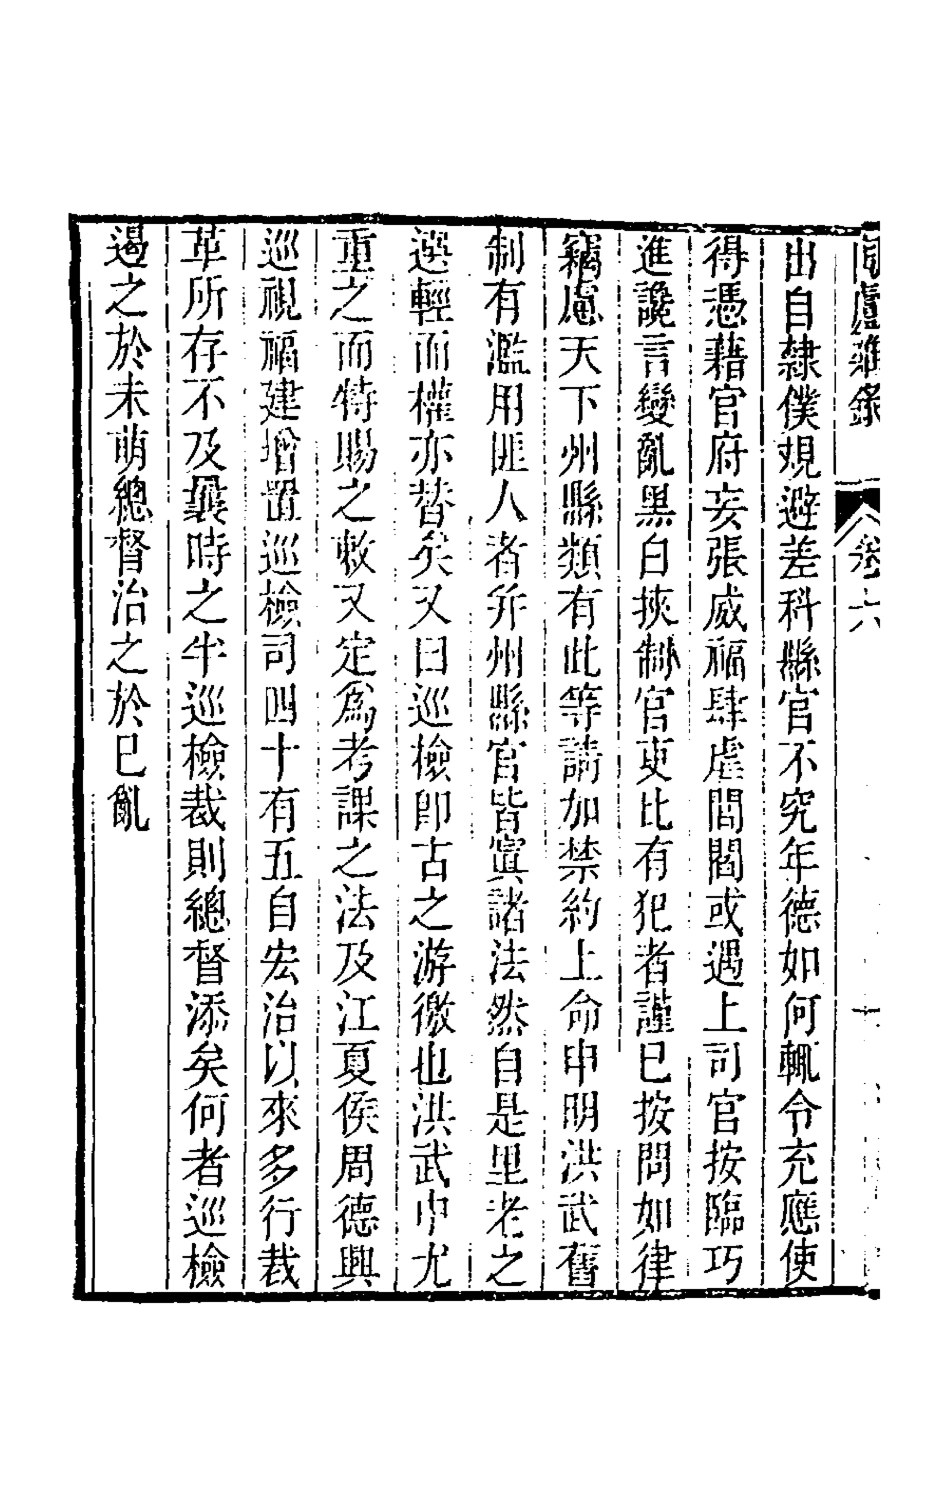 出自隸僕規避差科縣官不究年德如何輒令充應使
得憑藉官府妄張威福肆虐閭閻或遇上司官按臨巧
進讒言變亂黑白挾制官吏比有犯者謹已按問如律
竊慮天下州縣類有此等請加禁約上命申明洪武舊
制有濫用匪人者并州縣官皆寘諸法然自是里老之
選輕而權亦替矣又曰巡檢卽古之游徼也洪武中尤
重之而特賜之敕又定爲考課之法及江夏侯周德興
巡視福建增置巡檢司四十有五自宏治以來多行裁
革所存不及曩時之半巡檢裁則總督添矣何者巡檢
遏之於未萌總督治之於已亂